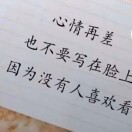 心情再差
也不要写在脸上
因为没有人喜欢看